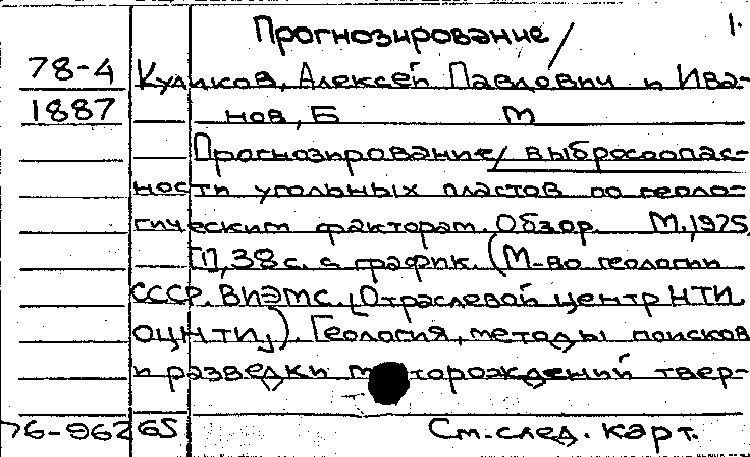 Прогнозирование/ 1.
78-4 Куликов, Алексей Павлович и Ива-
1887 нов, Б М
Прогнозирование/ выбросоопас-
ности угольных пластов по геоло-
гическим факторам. Обзор. М., 1975
[1], 38 с. с график. (М-во геологии
СССР. ВИЭМС. [Отраслевой центр НТИ.
ОЦНТИ]). Геология, методы поисков
и разведки месторождений твер-
76-96265 См. след. карт.